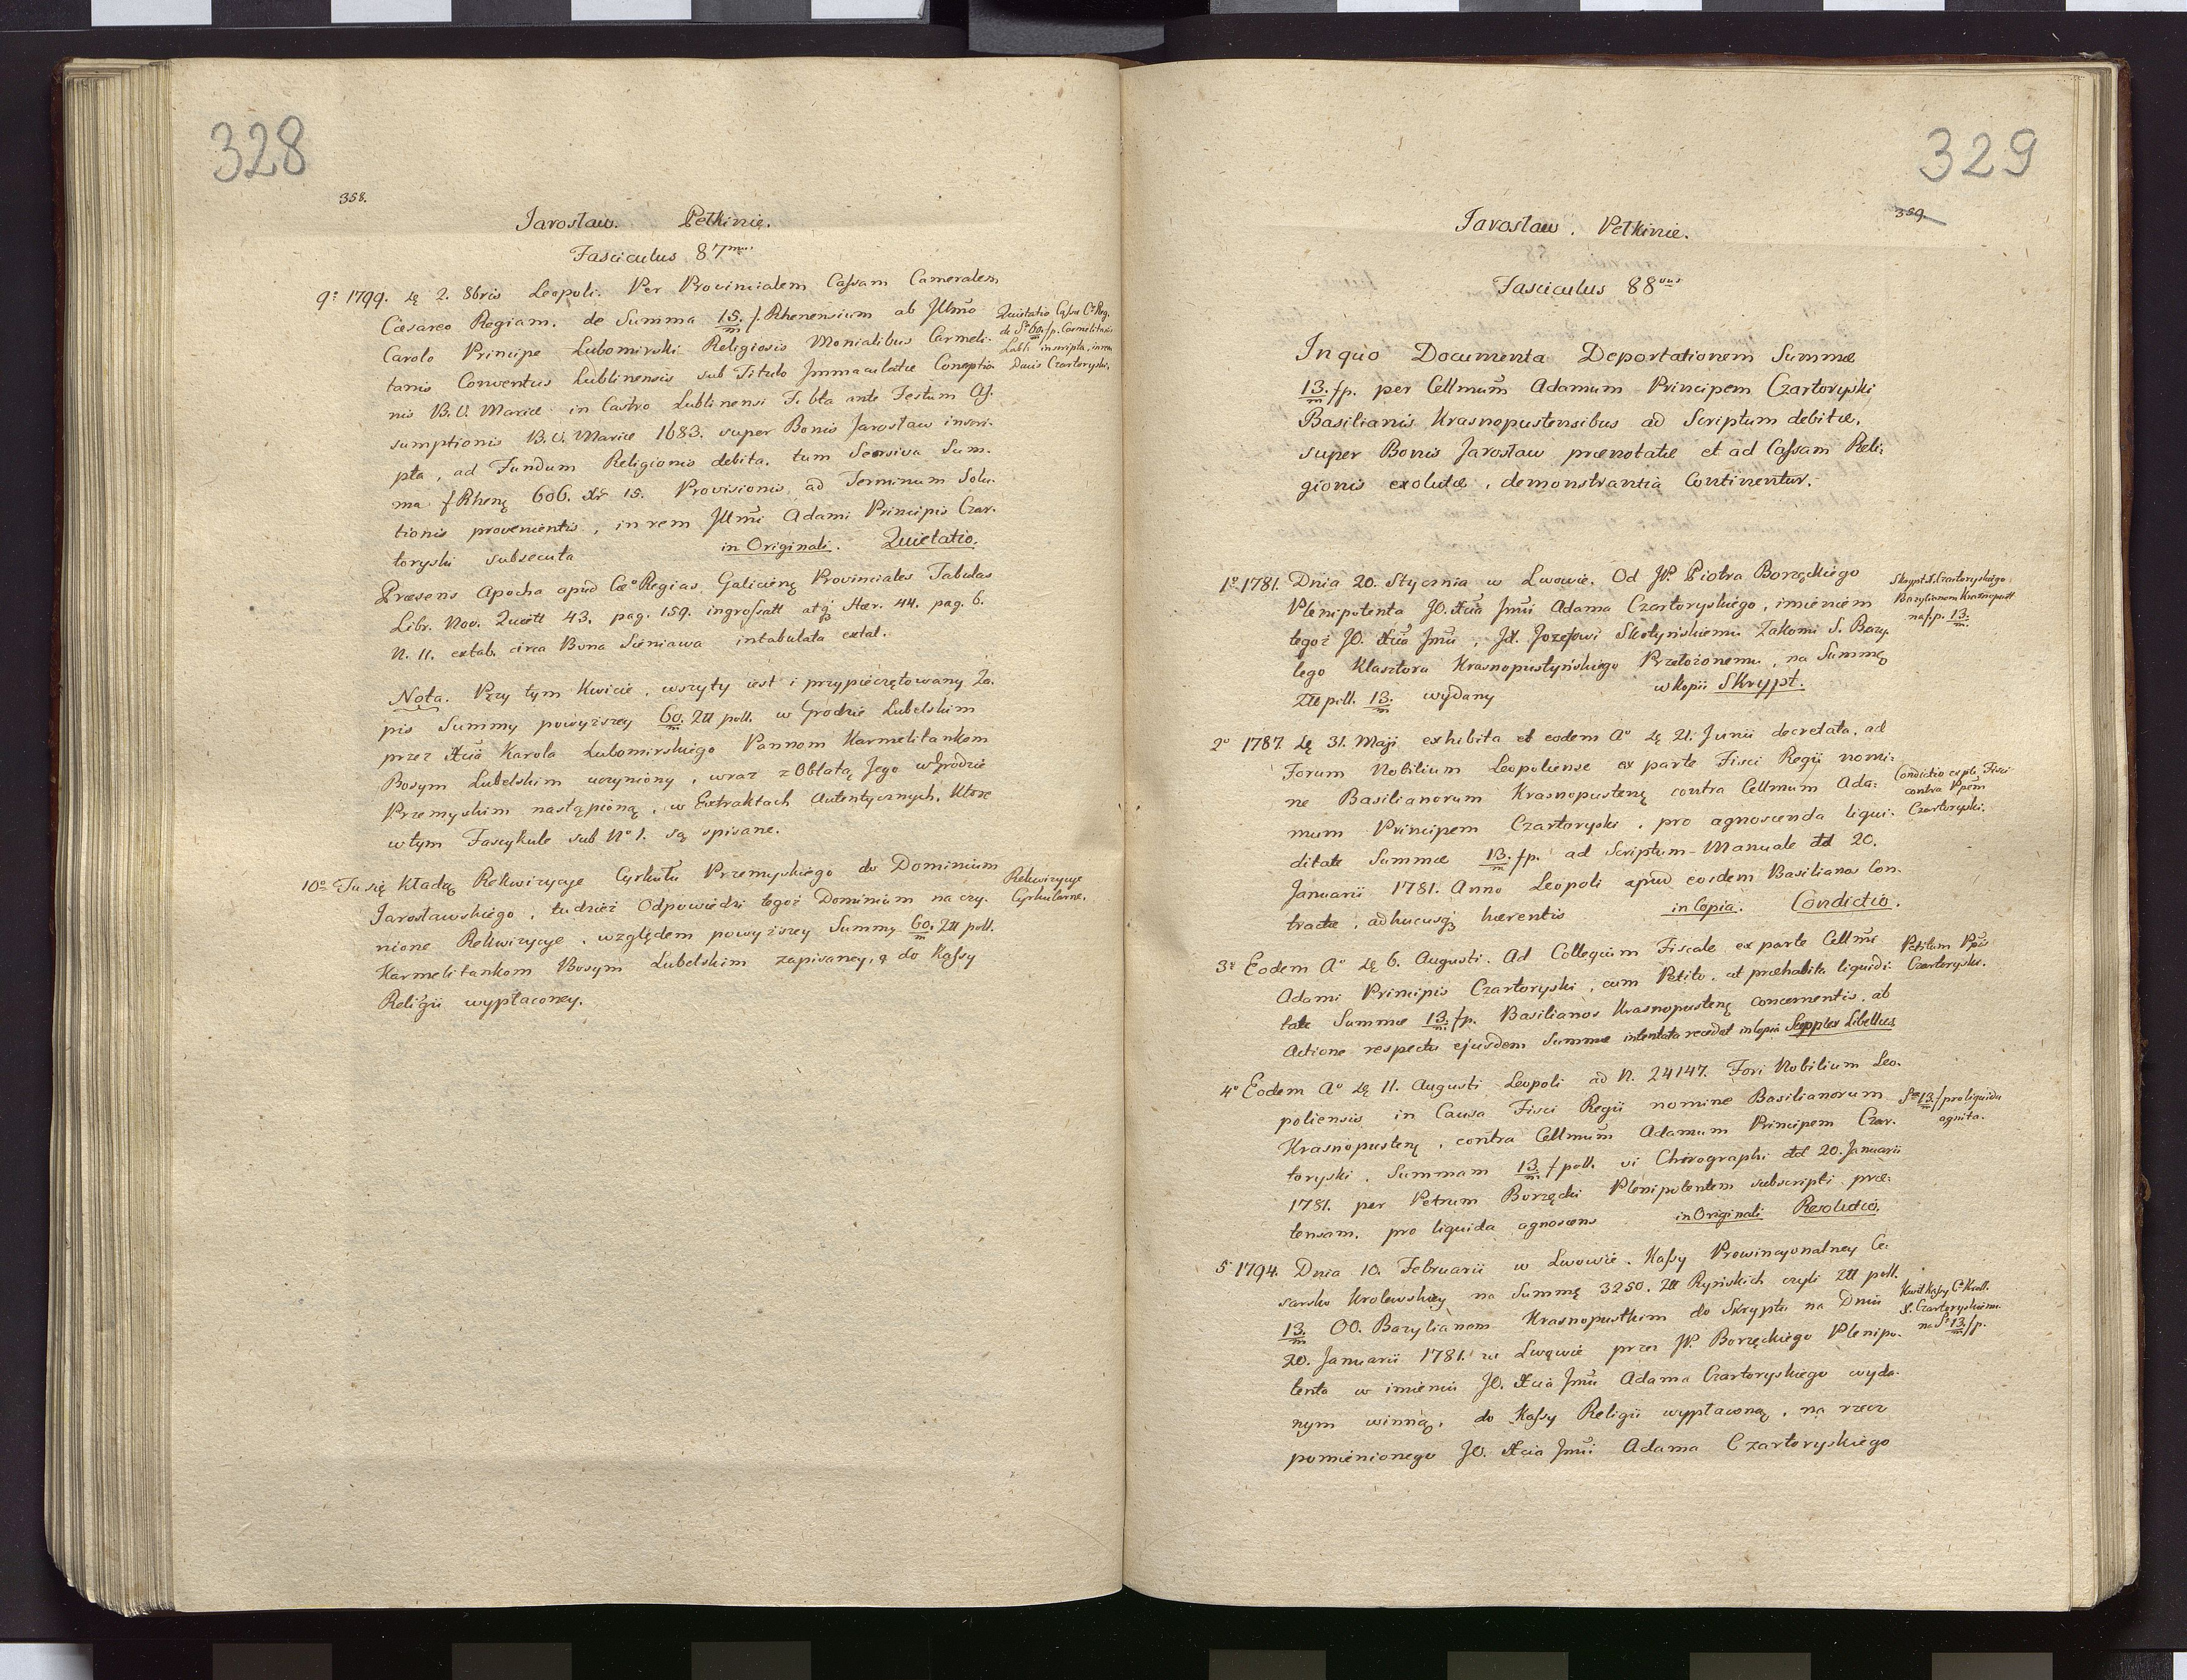 328
358.
Jarosław. Pełkinie.
Fasciculus 87mus
9o 1799. dę 2. 8bris Leopoli. Per Provincialem Cassam Cameralem
Cæsareo Regiam. de Summa 15/m f. Rhenensium ab Jllmo
Carolo Principe Lubomirski Religiosis Monialibus Carmeli-
tanis Conventus Lublinensis sub Titulo Jmmaculatæ Conceptio
nis B. V. Mariæ in Castro Lublinensi F. bta ante Festum As-
sumptionis B. V. Mariæ 1683. super Bonis Jarosław inscri-
pta, ad Fundum Religionis debita. tum Sensiva Sum-
ma f Rhenę 606. Xr 15. Provisionis ad Terminum Solu-
tionis provenientis, in rem Jllmi Adami Principis Czar-
toryski subsecuta in Originali. Quietatio.
Præsens Apocha apud Cæo Regias Galicienę Provinciales Tabulas
Libr. Nov. Quiett 43. pag. 159. ingrossatt atq Hær. 44. pag. 6.
N. 11. extab. circa Bona Sieniawa intabulata extat.
Quietatio Cassæ Co Reg.
de St 60/m fp. Carmelitanis
Lubli. inscripta, in rem
Ducis Czartoryski.
Nota. Przy tym Kwicie, wszyty iest i przypieczętowany Za-
pis Summy powyższey 60/m Zll poll. w Grodzie Lubelskim
przez Xcia Karola Lubomirskiego Pannom Karmelitankom
Bosym Lubelskim uczyniony, wraz z Oblatą Jego w Grodzie
Przemyskim nastąpioną, w Extraktach Autentycznych, Które
w tym Fascykule sub No 1. są spisane.
10o Tu się Kładą Rekwizycye Cyrkułu Przemyskiego do Dominium
Jarosławskiego, tudzież Odpowiedzi tegoż Dominium na czy-
nione Rekwizycye, względem powyższey Summy 60/m Zll poll.
Karmelitankom Bosym Lubelskim zapisaney, a do Kassy
Religii wypłaconey.
Rekwizycye
Cyrkularne.
329
359.
Jarosław. Pełkinie.
Fasciculus 88vus
In quo Documenta Deportationem Summæ
13/m fp. per Cellmum Adamum Principem Czartoryski
Basilianis Krasnopustensibus ad Scriptum debitæ,
super Bonis Jarosław prænotatæ et ad Cassam Reli-
gionis exolutæ, demonstrantia Continentur.
1o 1781. Dnia 20. Stycznia w Lwowie. Od JP. Piotra Borzęckiego
Plenipotenta JO. Xcia Jmci Adama Czartoryskiego, imieniem
tegoż JO. Xcia Jmci, JX. Jozefowi Skotyńskiemu Zakonu S. Bazy-
lego Klasztoru Krasnopustyńskiego Przełożonemu, na Summę
Zll poll. 13/m wydany w kopii Skrypt.
Skrypt X. Czartoryskiego
Bazylianom Krasnopust
na f.p. 13/m
2o 1787. dę 31. Maji exhibita et eodem Ao dę 21. Junii decretata, ad
Forum Nobilium Leopoliense ex parte Fisci Regii nomi-
ne Basilianorum Krasnopustenę contra Cellmum Ada-
mum Principem Czartoryski, pro agnoscenda liqui-
ditate Summæ 13/m fp. ad Scriptum Manuale dd 20.
Januarii 1781. Anno Leopoli apud eosdem Basilianos Con-
tractæ, adhucusq hærentis in Copia. Condictio.
Condictio ex pte Fisci
contra Ppem
Czartoryski.
3o Eodem Ao dę 6. Augusti. Ad Collegium Fiscale ex parte Cellmi
Adami Principis Czartoryski, cum Petito, ut præhabita liquidi-
tate Summæ 13/m fp. Basilianos Krasnopustenę concernentis, ab
Actione respectu ejusdem Summæ intentata recedat in Copia Supplex Libellus
Petitum Ppis
Czartoryski.
4o Eodem Ao dę 11. Augusti Leopoli ad N. 24147. Fori Nobilium Leo-
poliensis in Causa Fisci Regii nomine Basilianorum
Krasnopustenę, contra Cellmum Adamum Principem Czar-
toryski. Summam 13/m f poll. vi Chirographi dd 20. Januarii
1781. per Petrum Borzęcki Plenipotentem subscripti præ-
tensam, pro liquida agnoscens in Originali Resolutio.
Sma 13/m f pro liquida
agnita.
5 1794. Dnia 10. Februarii w Lwowie. Kassy Prowincyonalney Ce-
sarsko Krolewskiey na Summę 3250. Zll Ryńskich czyli Zll poll.
13/m OO. Bazylianom Krasnopustkim do Skryptu na Dniu
20. Januarii 1781. w Lwowie przez JP. Borzęckiego Plenipo-
tenta w imieniu JO. Xcia Jmci Adama Czartoryskiego wyda-
nym winną, do Kassy Religii wypłaconą, na rzecz
pomienionego JO. Xcia Jmci Adama Czartoryskiego
Kwit Kassy Co Kroll.
X. Czartoryskiemu
na St 13/m fp.